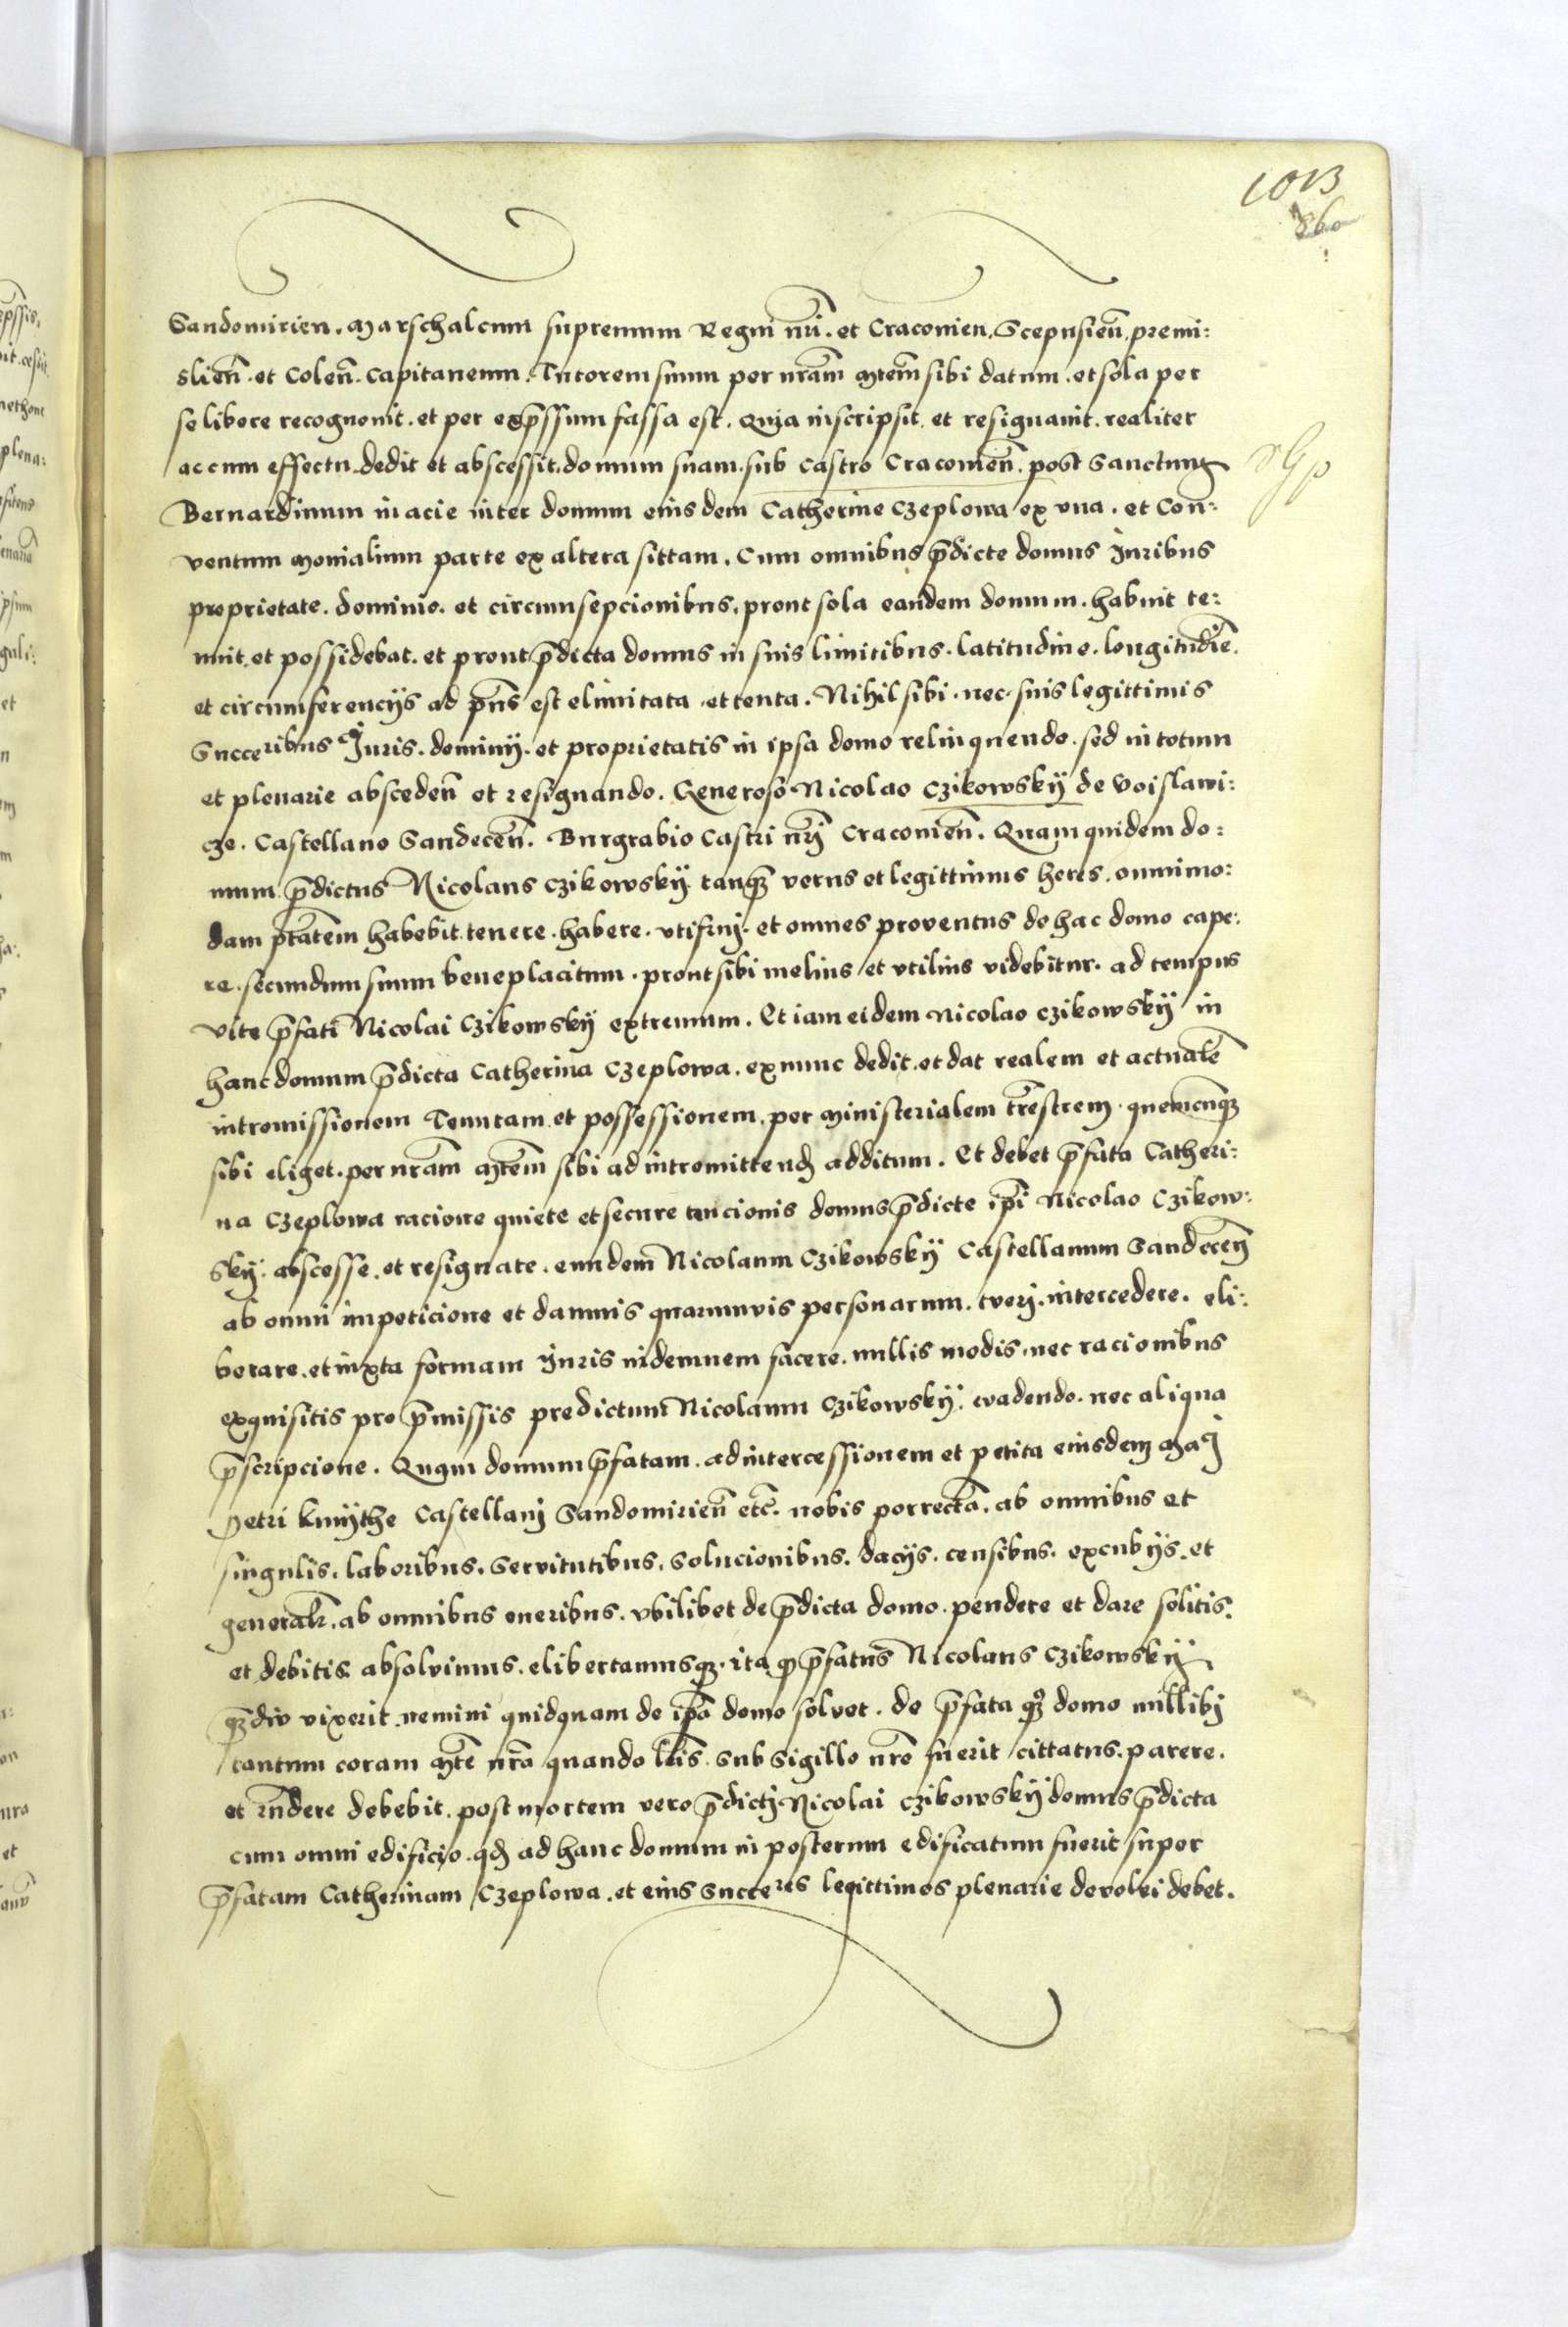 1013
Sandomirien. Marschalcum supremum Regni nri. et Craconien. Scepusien. premi:
slien. et Colen. Capitaneum. Tutorem suum per nram Mtem sibi datum. et sola per
se libere recognovit. et per expssum fassa est. Quia inscripsit et resignavit. realiter
ac cum effectu. dedit et abscessit. domum suam. sub Castro Cracovien. post Sanctum
Bernardinum in acie inter domum eiusdem Catherine Czeplowa ex una. et Con:
ventum Monialium parte ex altera sittam. Cum omnibus pdicte domus Juribus
proprietate. dominio. et circumsepcionibus. prout sola eandem domum. habuit te:
nuit. et possidebat. et prout pdicta domus in suis limitibus. latitudine. longitudie.
et circumferencijs ad pns est elimitata. et tenta. Nihil sibi. nec. suis legittimis
Succeribus Juris. dominij. et proprietatis in ipsa domo relinquendo. sed in totum
et plenarie absceden et resignando. Generoso Nicolao Czikowskÿ de Voislawi:
cze. Castellano Sandecen. Burgrabio Castri nrj Cracovien. Quam quidem do:
mum pdictus Nicolaus Czikowskÿ. tanq verus et legittimus heres. omnimo:
dam ptatem habebit. tenere. habere. utifruj. et omnes proventus de hac domo cape:
re. secundum suum beneplacitum. prout sibi melius et utilius videbitur. ad tempus
vite pfati Nicolai Czikowskÿ extremum. Et iam eidem Nicolao Czikowskÿ in
hanc domum pdicta Catherina Czeplowa. ex nunc dedit. et dat realem et actuale
intromissionem Tenutam. et possessionem. per Ministerialem trestrem. quemcunq
sibi eliget. per nram Mtem sibi ad intromittend additum. Et debet pfata Catheri:
na Czeplowa racione quiete et secure tencionis domus pdicte ipi Nicolao Czikow:
skÿ. abscesse. et resignate. eundem Nicolaum Czikowskÿ Castellanum Sandecen
ab omni impeticione et damnis quarumvis personarum. tverj. intercedere. eli:
berare. et iuxta formam Juris indemnem facere. nullis modis. nec racionibus
exquisitis pro pmissis predictum Nicolaum Czikowskÿ. evadendo. nec aliqua
pscripcione. Quam domum pfatam. ad intercessionem et petita eiusdem Maci
Petri Kmÿthe Castellanj Sandomirien etc. nobis porrecta. ab omnibus et
singulis. laboribus. Servitutibus. Solucionibus. dacijs. censibus. excubijs. et
generalr. ab omnibus oneribus. ubilibet de pdicta domo. pendere et dare solitis.
et debitis absolvimus. elibertamusq. ita q pfatus Nicolaus Czikowskÿ
qdiu vixerit. nemini quidquam de ipa domo solvet. de pfata q domo nullibj
tantum coram Mte nra quando lris. sub sigillo nro fuerit cittatus. parere.
et rndere debebit. post mortem vero pdictj Nicolai Czikowskÿ domus pdicta
cum omni edificio. qd ad hanc domum in posterum edificatum fuerit super
pfatam Catherinam Czeplowa. et eius succeres legittimos plenarie devolvi debet.